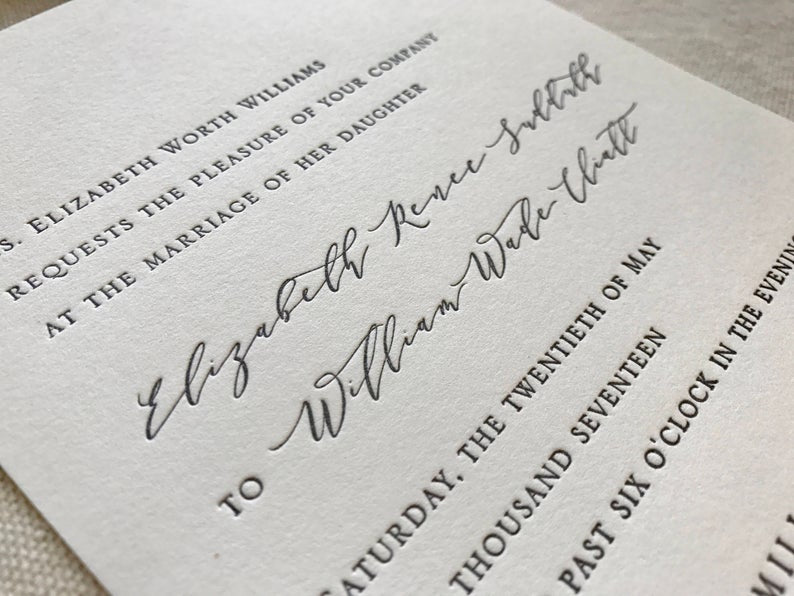 S. ELIZABETH WORTH WILLIAMS
REQUESTS THE PLEASURE OF YOUR COMPANY
AT THE MARRIAGE OF HER DAUGHTER
Elizabeth Renee
TO William Wade
SATURDAY, THE TWENTIETH OF MAY
THOUSAND SEVENTEEN
PAST SIX O'CLOCK IN THE EVENING
MILL